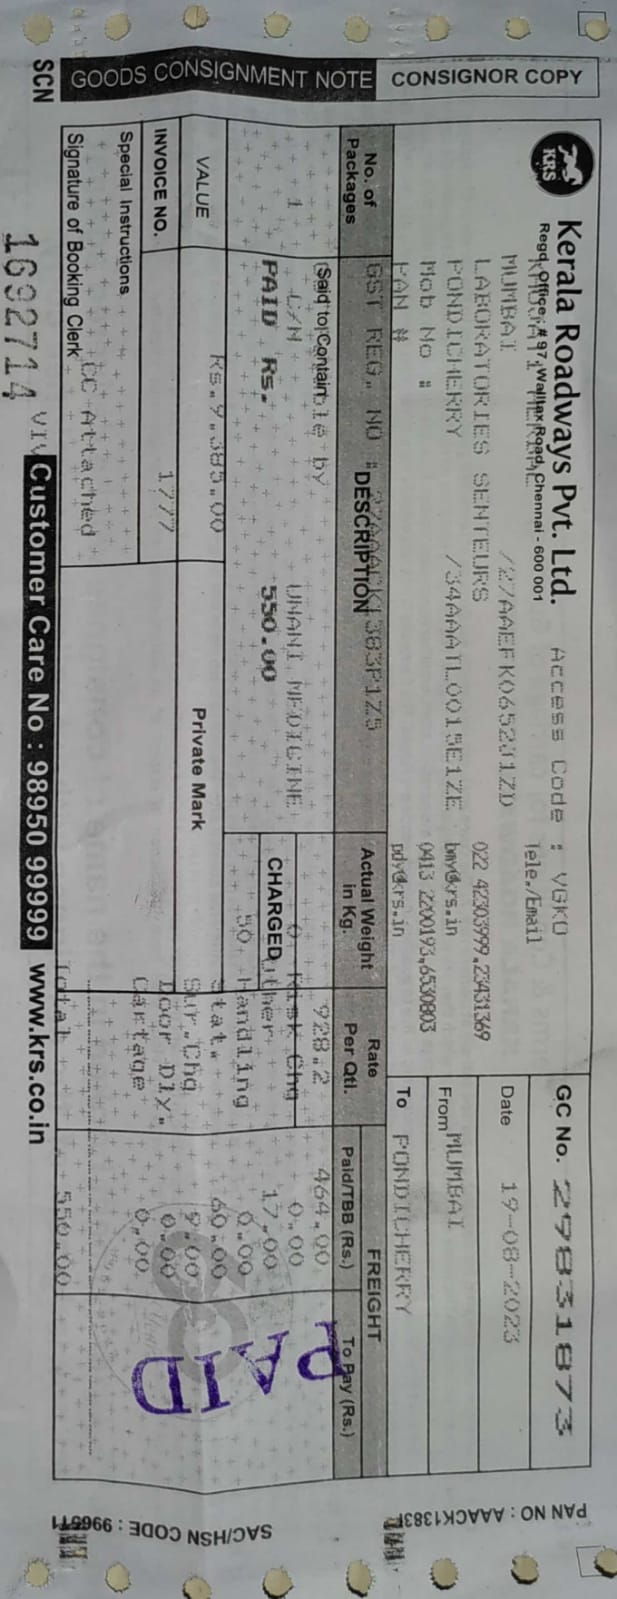 GOODS CONSIGNMENT NOTE CONSIGNOR COPY
KRS
Kerala Roadways Pvt. Ltd. Access Code : VGKO
Regd. Office, # 97, Walltax Road, Chennai - 600 001
Tele./Email
GC No. 29831873
MUMBAI /27AAEFK0652J1ZD
Date 19-08-2023
LABORATORIES SENTEURS 022 42303999,23431369
PONDICHERRY /34AAATL0015E1ZE bmy@krs.in
From MUMBAI
Mob No : 0413 2200193,6530803
PAN # pdy@krs.in
To PONDICHERRY
No. of Packages
GST REG. NO :
DESCRIPTION
Actual Weight in Kg.
Rate Per Qtl.
FREIGHT
Paid/TBB (Rs.) To Pay (Rs.)
Said to Contain by
928.2 464.00
1 C/N UNANI MEDICINE 0 Risk Chg 0.00
PAID Rs. 550.00 CHARGED Other 17.00
50 Handling 0.00
Stat. 60.00
VALUE Rs.9,385.00 Private Mark Sur.Chg 9.00
INVOICE NO. 1777 Door Dly. 0.00
Special Instructions Cartage 0.00
Signature of Booking Clerk CC Attached
Total 550.00
PAID
SCN 1692714 VIV Customer Care No : 98950 99999 www.krs.co.in
PAN NO : AAACK1383F
SAC/HSN CODE : 996511